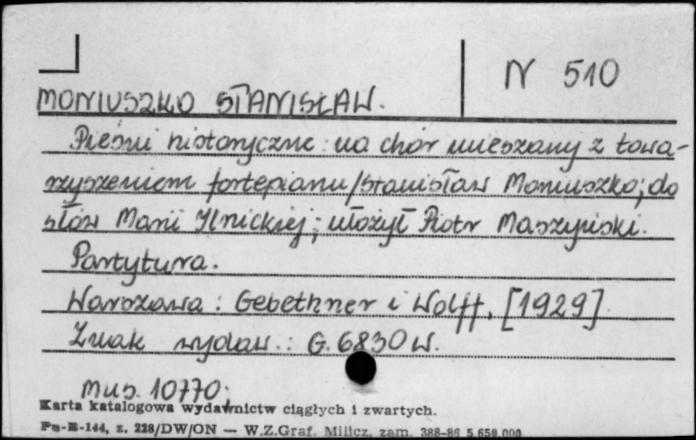 N 510
MONIUSZKO STANISŁAW.
Pieśni historyczne : na chór mieszany z towa-
rzyszeniem fortepianu / Stanisław Moniuszko ; do
słów Marii Ilnickiej ; ułożył Piotr Maszyński.
Partytura.
Warszawa : Gebethner i Wolff, [1929].
Znak wydaw. : G. 6830 W.
Mus. 10770.
Karta katalogowa wydawnictw ciągłych i zwartych.
Pu-B-144, z. 228/DW/ON — W.Z.Graf. Milicz, zam. 388-86 5.650.000